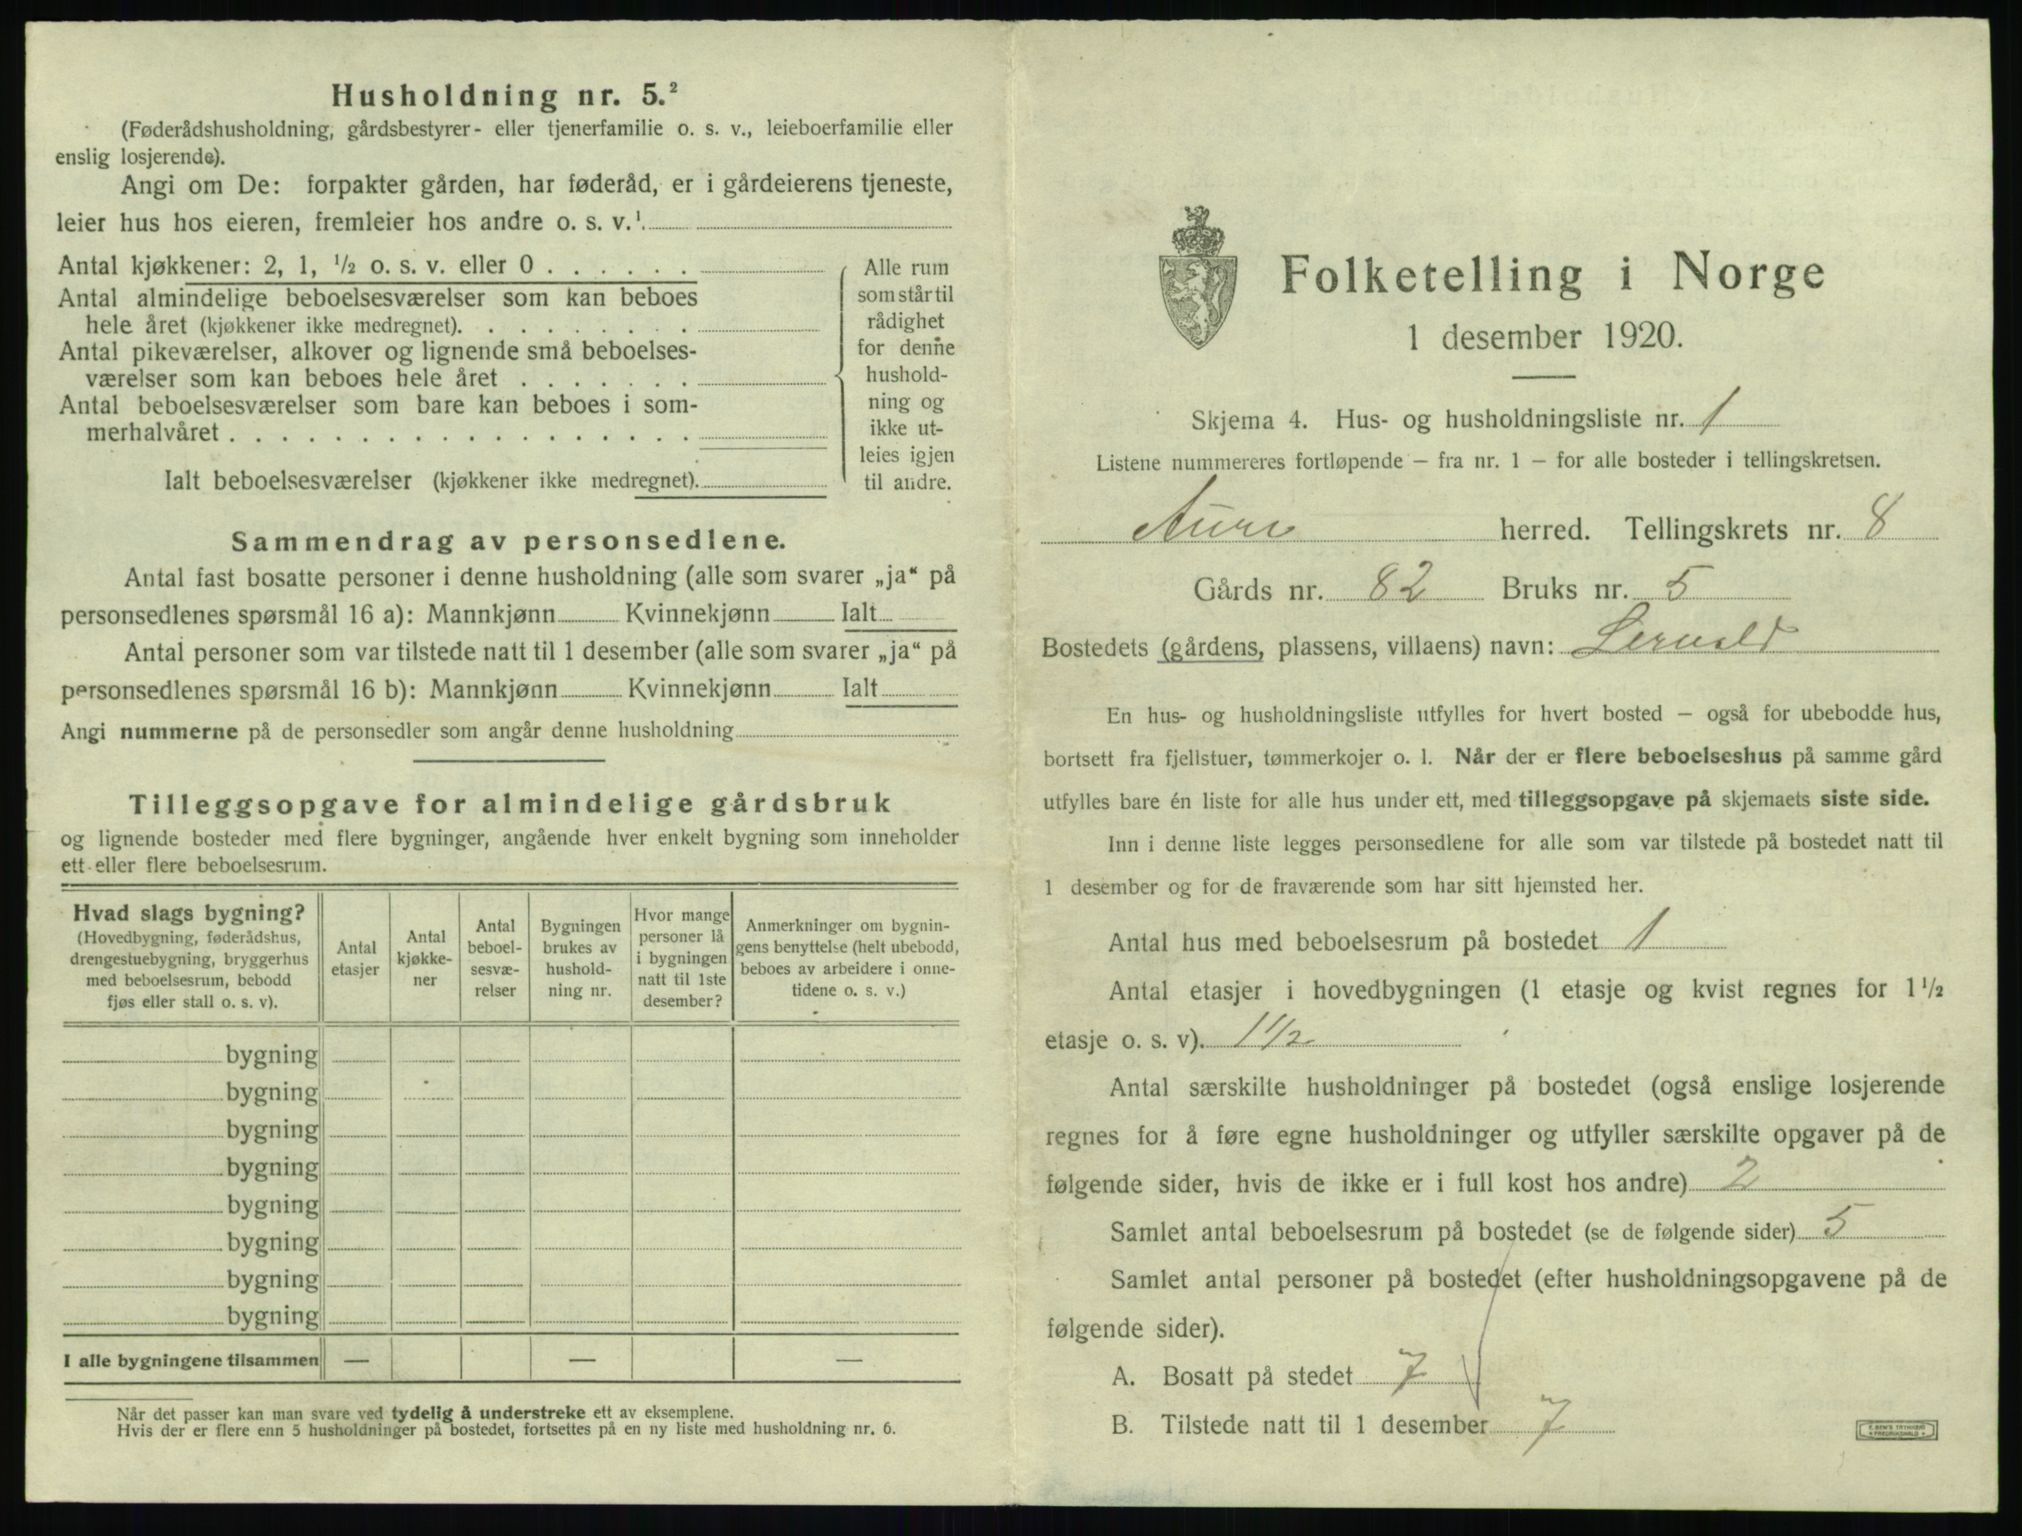 Husholdning nr. 5.²
(Føderådshusholdning, gårdsbestyrer- eller tjenerfamilie o. s. v., leieboerfamilie eller
enslig losjerende).
Angi om De: forpakter gården, har føderåd, er i gårdeierens tjeneste,
leier hus hos eieren, fremleier hos andre o. s. v.¹
Antal kjøkkener: 2, 1, ½ o. s. v. eller 0 . . . . . .
Antal almindelige beboelsesværelser som kan beboes
hele året (kjøkkener ikke medregnet). . . . . . . . .
Antal pikeværelser, alkover og lignende små beboelses-
værelser som kan beboes hele året . . . . . . .
Antal beboelsesværelser som bare kan beboes i som-
merhalvåret . . . . . . . . . . . . . . . . . .
Ialt beboelsesværelser (kjøkkener ikke medregnet).
Alle rum
som står til
rådighet
for denne
hushold-
ning og
ikke ut-
leies igjen
til andre.
Sammendrag av personsedlene.
Antal fast bosatte personer i denne husholdning (alle som svarer „ja“ på
personsedlenes spørsmål 16 a): Mannkjønn Kvinnekjønn Ialt
Antal personer som var tilstede natt til 1 desember (alle som svarer „ja“ på
personsedlenes spørsmål 16 b): Mannkjønn Kvinnekjønn Ialt
Angi nummerne på de personsedler som angår denne husholdning
Tilleggsopgave for almindelige gårdsbruk
og lignende bosteder med flere bygninger, angående hver enkelt bygning som inneholder
ett eller flere beboelsesrum.
Hvad slags bygning?
(Hovedbygning, føderådshus,
drengestuebygning, bryggerhus
med beboelsesrum, bebodd
fjøs eller stall o. s. v).
Antal
etasjer
Antal
kjøkke-
ner
Antal
beboel-
sesvæ-
relser
Bygningen
brukes av
hushold-
ning nr.
Hvor mange
personer lå
i bygningen
natt til 1ste
desember?
Anmerkninger om bygnin-
gens benyttelse (helt ubebodd,
beboes av arbeidere i onne-
tidene o. s. v.)
bygning
bygning
bygning
bygning
bygning
bygning
bygning
bygning
I alle bygningene tilsammen — — —
Når det passer kan man svare ved tydelig å understreke ett av eksemplene.
Hvis der er flere enn 5 husholdninger på bostedet, fortsettes på en ny liste med husholdning nr. 6.
Folketelling i Norge
1 desember 1920.
Skjema 4. Hus- og husholdningsliste nr. 1
Listene nummereres fortløpende – fra nr. 1 – for alle bosteder i tellingskretsen.
Aure herred. Tellingskrets nr. 8
Gårds nr. 82 Bruks nr. 5
Bostedets (gårdens, plassens, villaens) navn: Lervold
En hus- og husholdningsliste utfylles for hvert bosted – også for ubebodde hus,
bortsett fra fjellstuer, tømmerkojer o. l. Når der er flere beboelseshus på samme gård
utfylles bare én liste for alle hus under ett, med tilleggsopgave på skjemaets siste side.
Inn i denne liste legges personsedlene for alle som var tilstede på bostedet natt til
1 desember og for de fraværende som har sitt hjemsted her.
Antal hus med beboelsesrum på bostedet 1
Antal etasjer i hovedbygningen (1 etasje og kvist regnes for 1½
etasje o. s. v). 1½
Antal særskilte husholdninger på bostedet (også enslige losjerende
regnes for å føre egne husholdninger og utfyller særskilte opgaver på de
følgende sider, hvis de ikke er i full kost hos andre) 2
Samlet antal beboelsesrum på bostedet (se de følgende sider) 5
Samlet antal personer på bostedet (efter husholdningsopgavene på de
følgende sider).
A. Bosatt på stedet 7
B. Tilstede natt til 1 desember 7